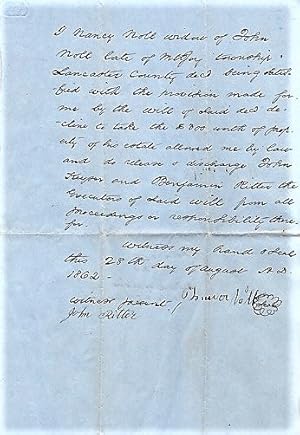 I Nancy Noll widow of John
Noll late of Mtjoy township
Lancaster County decd being satis
fied with the provision made for
me by the will of said decd de-
cline to take the $300 worth of prop
erty of his estate allowed me by law
and do release & discharge John
and Benjamin Ritter the
Executors of said will from all
proceedings or responsibility there
for.
Witness my hand & seal
this 28th day of August A.D.
1862 -
witness present
John Ritter